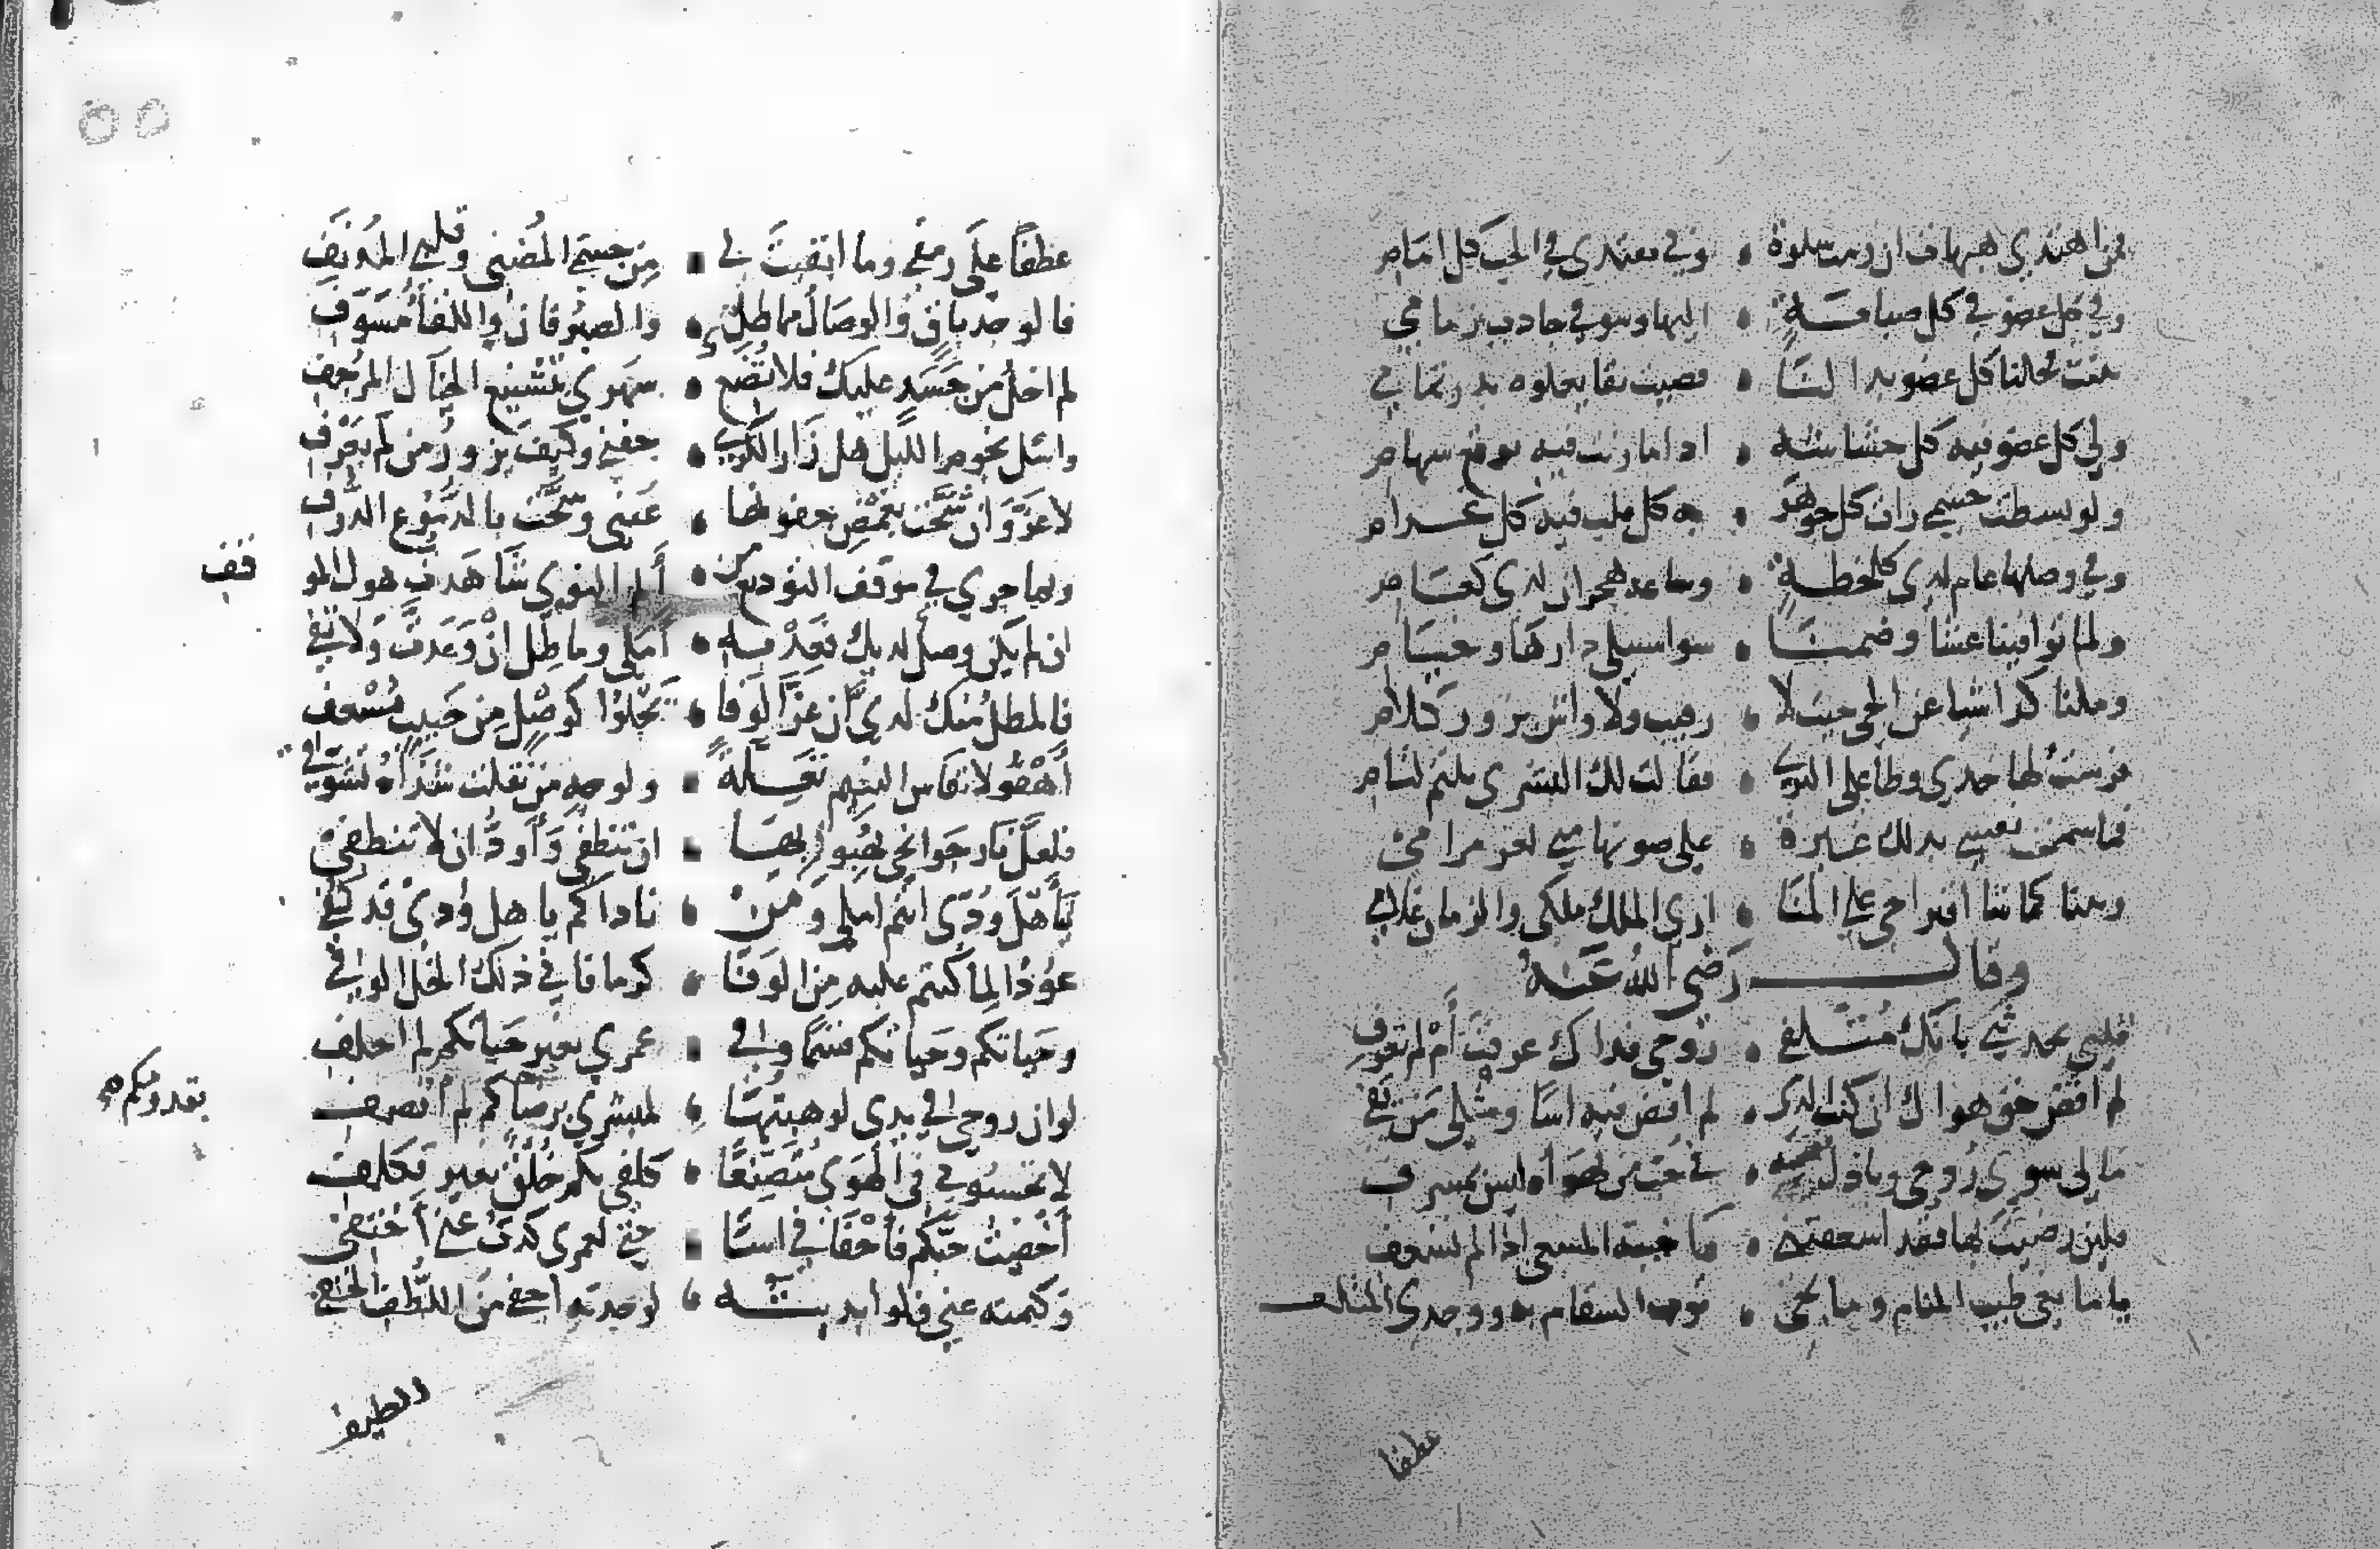 فمن اهتدي هيهات ان رمت سلوة • وبي يقتدي في الحب كل امام
وفي كل عضو في كل صبابة • اليها وشوق جاذب بزمامي
تثنت فخلنا كل عضو بدا لنا • قضيب نقا يعلوه بدر تمام
ولي كل عضو فيه كل حشا به • اذا ما رنت فيه لوقع سهام
ولو بسطت جسمي رات كل جوهر • به كل قلب فيه كل غرام
وفي وصلها عام لدي كلحظة • وساعة هجران لدي كعام
ولما توافينا عشا وضمنا • سوا سبيلي دارها وخيام
وملنا كذا شيا عن الحي حيث لا • رقيب ولا واش بزور كلام
فرشت لها خدي وطا على الثري • فقالت لك البشرى بلثم لثام
فما سمحت نفسي بذلك غيرة • على صونها مني لعز مرامي
وبتنا كما شا اقتراحي على المنا • ارى الملك ملكي والزمان غلامي
وقال رضي الله عنه
قلبي يحدثني بانك متلفي • روحي فداك عرفت أم لم تعرف
لم اقض حق هواك ان كنت الذي • لم اقض فيه اسا ومثلي من يفي
ما لي سوى روحي وباذل نفسه • في حب من يهواه ليس بمسرف
فلين رضيت بها فقد اسعفتني • يا خيبة المسعى اذا لم تسعف
يا مانعي طيب المنام ومانحي • ثوب السقام به ووجدى المتلف
عطفا
عطفا على رمقي وما ابقيت لي • من جسمي المضنى وقلبي المدنف
فالوجد باق والوصال مماطلي • والصبر فان واللقا مسوفي
لم اخل من حسد عليك فلا تضع • سهري بتشنيع الخيال المرجف
واسئل نجوم الليل هل زار الكري • جفني وكيف يزور من لم يعرف
لا غرو ان شحت بغمض جفونها • عيني وسحت بالدموع الذرف
وبما جري في موقف التوديع من • ألم النوي شاهدت هول الموقف
ان لم يكن وصل لديك فعد به • أملي وماطل ان وعدت ولا تفي
فالمطل منك لدي ان عز الوفا • يحلوا كوصل من حبيب مسعف
أهفو لانفاس النسيم تعلة • ولوجه من نقلت شذاه تشوفي
فلعل نار جوانحي بهبوبها • ان تنطفي وأود ان لا تنطفي
يا أهل ودي انتم املي ومن • ناداكم يا اهل ودي قد كفي
عودوا لما كنتم عليه من الوفا • كرما فاني ذلك الخل الوفي
وحياتكم وحياتكم قسما وفي • عمري بغير حياتكم لم احلف
لو ان روحي في يدي لو هبتها • لمبشري برضاكم لم انصف
بقدومكم
لا تحسبوني في الهوى متصنعا • كلفي بكم خلق بغير تكلف
أخفيت حبكم فأخفاني اسا • حتى لعمري كدت عني أختفي
وكتمته عني فلو ابديته • لوجدته اخفى من اللطف الخفي